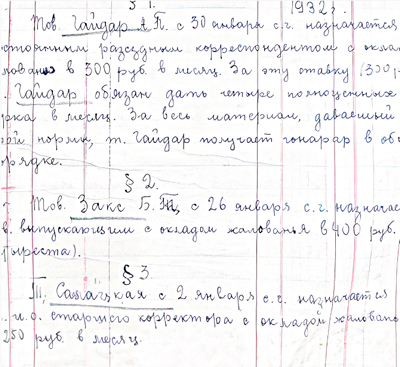 § 1. 1932 г.
Тов. Гайдар А.П. с 30 января с.г. назначается
стоянным разъездным корреспондентом с окла
лования в 300 руб. в месяц. За эту ставку (300 р
. Гайдар обязан дать четыре полноценных
рка в месяц. За весь материал, даваемый
ой нормы, т. Гайдар получает гонарар в об
орядке.
§ 2.
Тов. Закс Б. с 26 января с.г. назначае
в. выпускающим с окладом жалованья в 400 руб.
§ 3.
Т. Самацкая с 2 января с.г. назначается
. и.о. старшего корректора с окладом жалован
250 руб. в месяц.